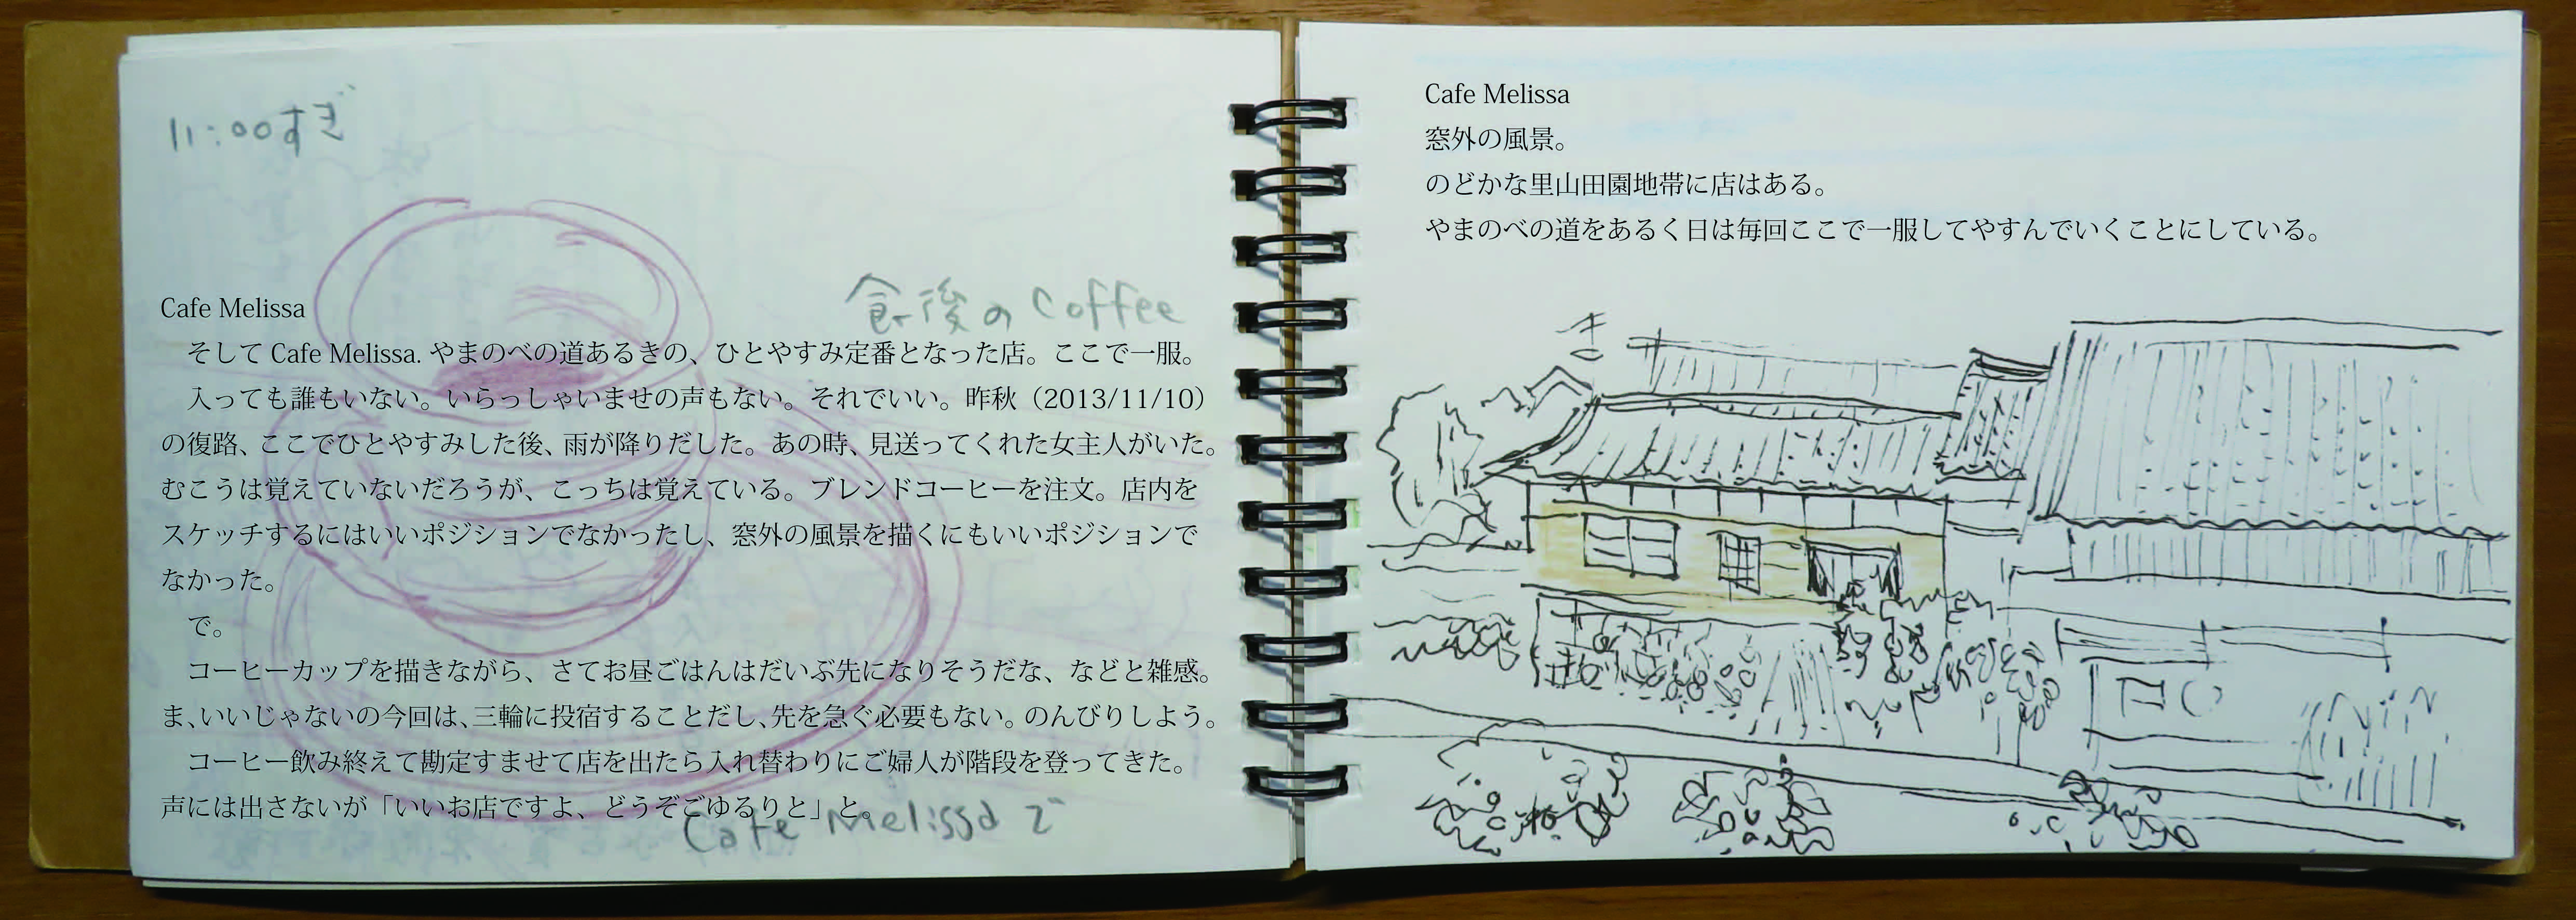 11:00すぎ
食後の Coffee
Cafe Melissa
そして Cafe Melissa. やまのべの道あるきの、ひとやすみ定番となった店。ここで一服。
入っても誰もいない。いらっしゃいませの声もない。それでいい。昨秋（2013/11/10）
の復路、ここでひとやすみした後、雨が降りだした。あの時、見送ってくれた女主人がいた。
むこうは覚えていないだろうが、こっちは覚えている。ブレンドコーヒーを注文。店内を
スケッチするにはいいポジションでなかったし、窓外の風景を描くにもいいポジションで
なかった。
で。
コーヒーカップを描きながら、さてお昼ごはんはだいぶ先になりそうだな、などと雑感。
ま、いいじゃないの今回は、三輪に投宿することだし、先を急ぐ必要もない。のんびりしよう。
コーヒー飲み終えて勘定すませて店を出たら入れ替わりにご婦人が階段を登ってきた。
声には出さないが「いいお店ですよ、どうぞごゆるりと」と。
Cafe Melissa で
Cafe Melissa
窓外の風景。
のどかな里山田園地帯に店はある。
やまのべの道をあるく日は毎回ここで一服してやすんでいくことにしている。